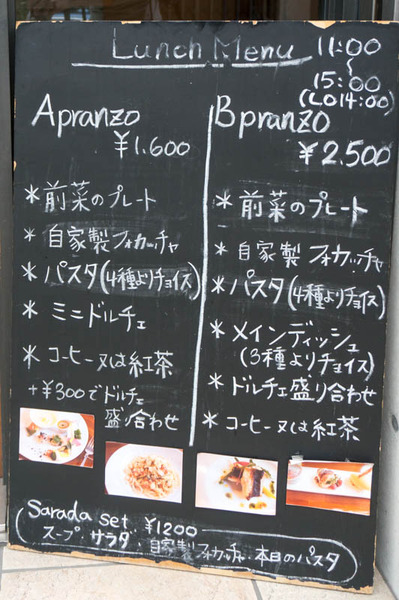 Lunch Menu 11:00
〜
15:00
(LO14:00)
A pranzo
¥1.600
*前菜のプレート
*自家製フォカッチャ
*パスタ(4種よりチョイス)
*ミニドルチェ
*コーヒー又は紅茶
+¥300でドルチェ
盛り合わせ
B pranzo
¥2.500
*前菜のプレート
*自家製フォカッチャ
*パスタ(4種よりチョイス)
*メインディッシュ
(3種よりチョイス)
*ドルチェ盛り合わせ
*コーヒー又は紅茶
Sarada set ¥1200
スープ・サラダ・自家製フォカッチャ・本日のパスタ